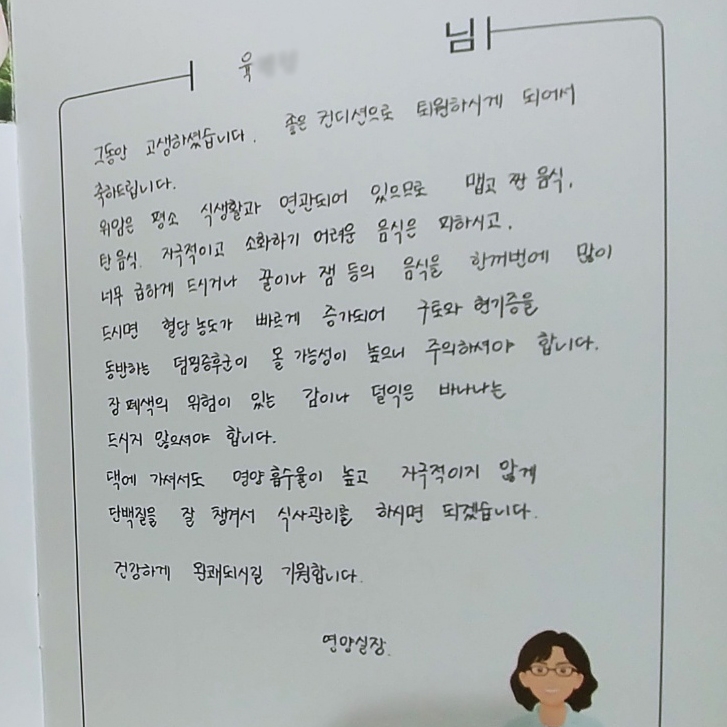 육 님
그동안 고생하셨습니다. 좋은 컨디션으로 퇴원하시게 되어서
축하드립니다.
위암은 평소 식생활과 연관되어 있으므로 맵고 짠 음식,
탄 음식, 자극적이고 소화하기 어려운 음식은 피하시고,
너무 급하게 드시거나 꿀이나 잼 등의 음식을 한꺼번에 많이
드시면 혈당 농도가 빠르게 증가되어 구토와 현기증을
동반하는 덤핑증후군이 올 가능성이 높으니 주의하셔야 합니다.
장 폐색의 위험이 있는 감이나 덜익은 바나나는
드시지 않으셔야 합니다.
댁에 가셔서도 영양 흡수율이 높고 자극적이지 않게
단백질을 잘 챙겨서 식사관리를 하시면 되겠습니다.
건강하게 완쾌되시길 기원합니다.
영양실장.